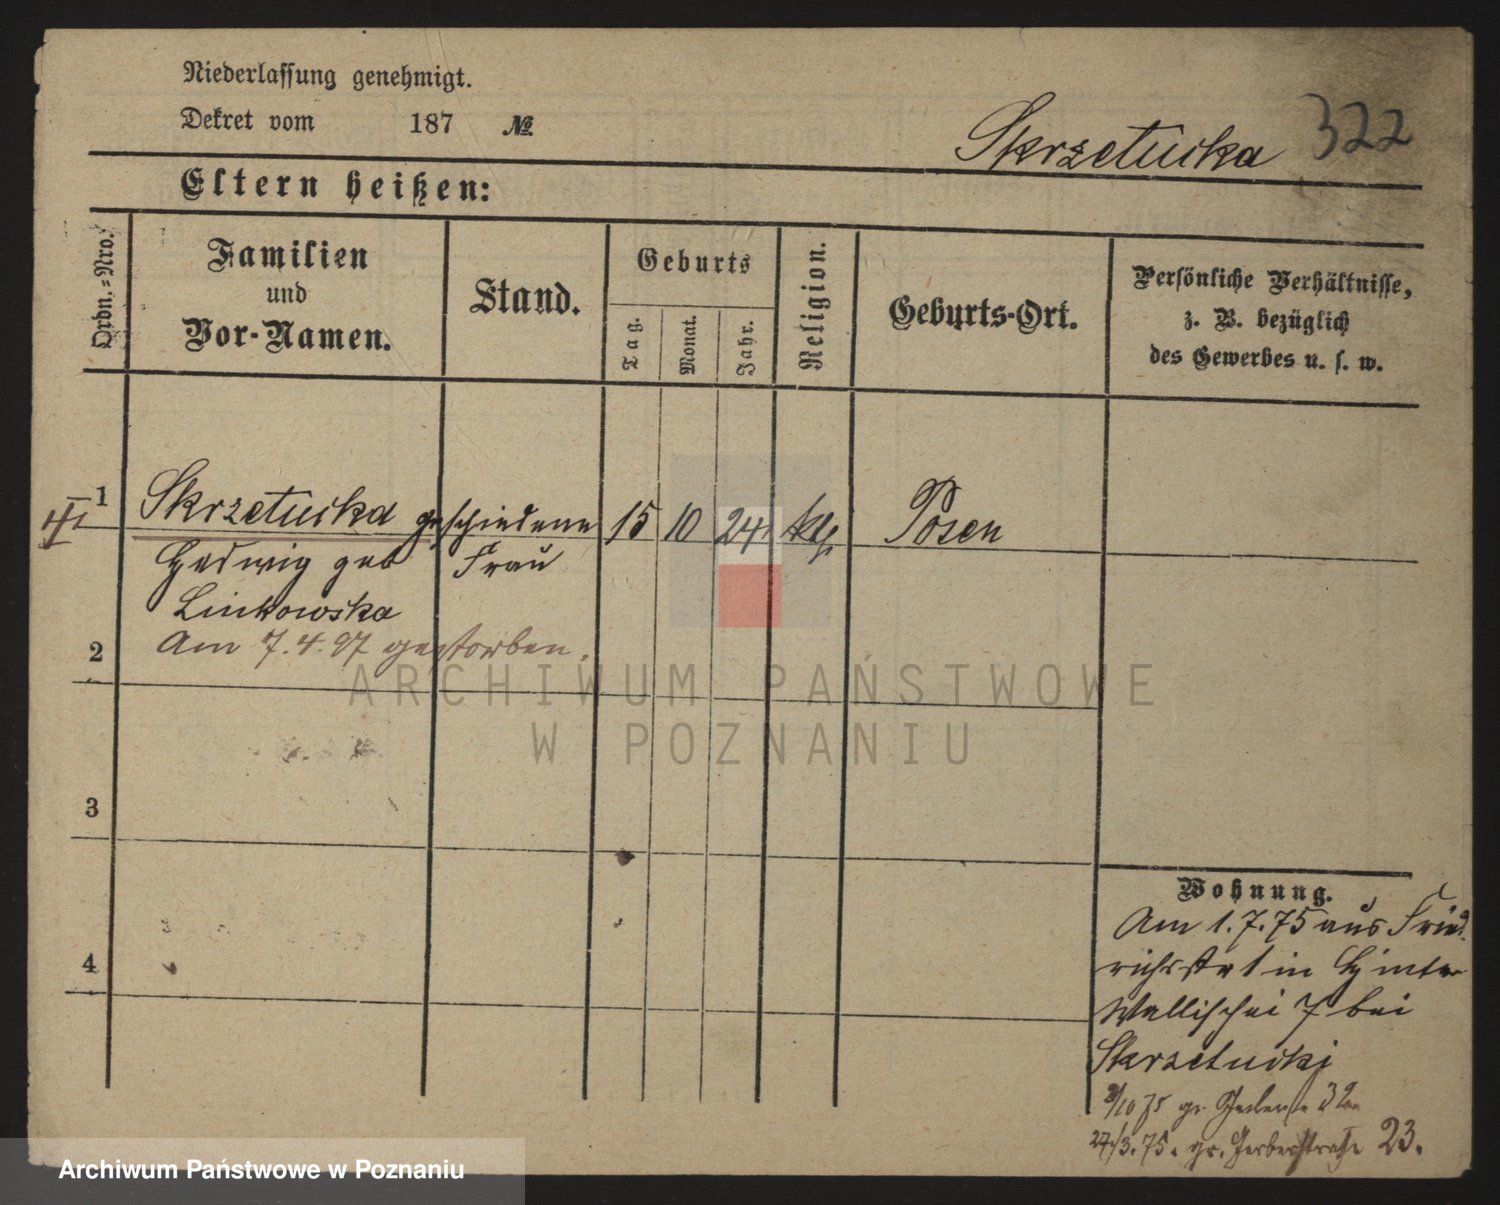 Niederlassung genehmigt.
Dekret vom 187 №
Skrzetuska 322
Eltern heißen:
Ordn.-Nro.
Familien
und
Vor-Namen.
Stand.
Geburts
Tag.
Monat.
Jahr.
Religion.
Geburts-Ort.
Persönliche Verhältnisse,
z. B. bezüglich
des Gewerbes u. s. w.
1 Skrzetuska geschiedene 15 10 24 Posen
Hedwig geb Frau
Linkowska
Am 7.4.97 gestorben.
2
ARCHIWUM PAŃSTWOWE
W POZNANIU
3
4
Wohnung.
Am 1.7.75 aus Fried
richsstr 1 in Hinter
Wallischei 7 bei
Skrzetuski
/10 75 gr
27/3.75. gr. Gerberstraße 23.
Archiwum Państwowe w Poznaniu